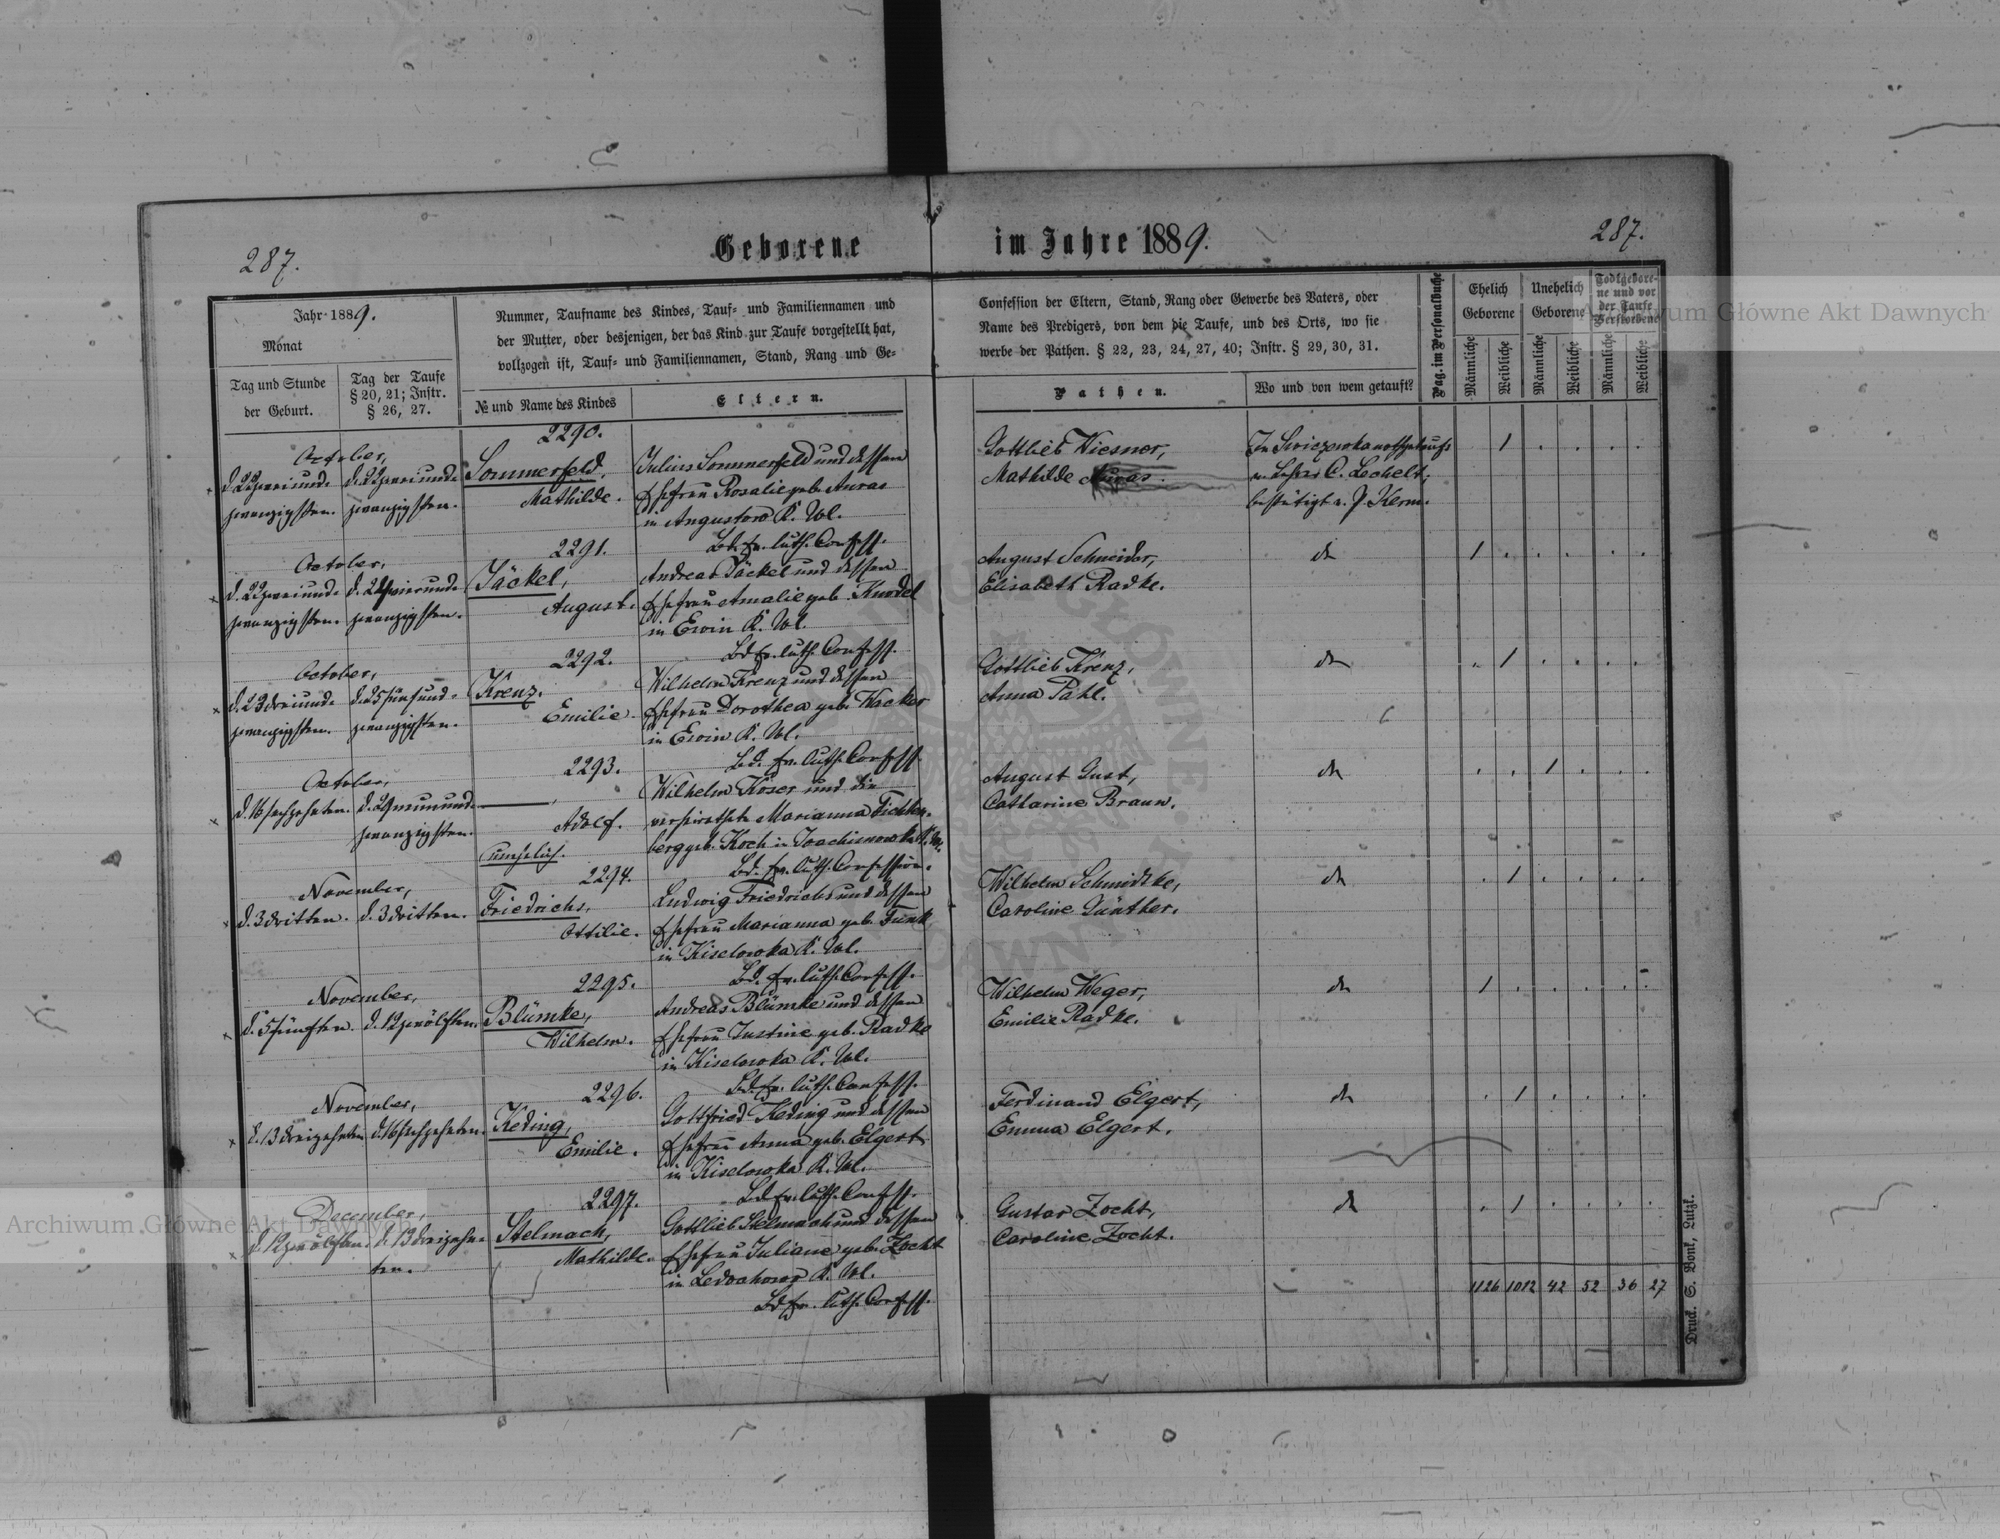 287.
Geborene
im Jahre 1889.
287.
Jahr 1889.
Monat
Tag und Stunde
der Geburt.
Tag der Taufe
§ 20, 21; Instr.
§ 26, 27.
Nummer, Taufname des Kindes, Tauf- und Familiennamen und
der Mutter, oder desjenigen, der das Kind zur Taufe vorgestellt hat,
vollzogen ist, Tauf- und Familiennamen, Stand, Rang und Ge-
№ und Name des Kindes
Eltern.
Confession der Eltern, Stand, Rang oder Gewerbe des Vaters, oder
Name des Predigers, von dem die Taufe, und des Orts, wo sie
werbe der Pathen. § 22, 23, 24, 27, 40; Instr. § 29, 30, 31.
Pathen.
Wo und von wem getauft?
Pag. im Personalbuche
Ehelich
Geborene
Unehelich
Geborene
Todtgebore-
ne und vor
der Taufe
Verstorbene
Männliche
Weibliche
Männliche
Weibliche
Männliche
Weibliche
2290.
October,
d. 22 zweiund-
zwanzigsten.
d. 22 zweiund-
zwanzigsten.
Sommerfeld,
Mathilde.
Julius Sommerfeld und dessen
Ehefrau Rosalie geb. Auras
in Augustow K. Wl.
Bd. ev. luth. Confess.
Gottlieb Wiesner,
Mathilde
nothgetauft
v. Lehrer C. Lechelt,
bestätigt v. P. Kerm.
2291.
October,
d. 22 zweiund-
zwanzigsten.
d. 24 vierund-
zwanzigsten.
Jäckel,
August.
Andreas Jäckel und dessen
Ehefrau Amalie geb. Kundel
in Erwin K. Wl.
Bd. ev. luth. Confess.
August Schneider,
Elisabeth Radke.
do
2292.
October,
d. 23 dreiund-
zwanzigsten.
d. 25 fünfund-
zwanzigsten.
Krenz,
Emilie.
Wilhelm Krenz und dessen
Ehefrau Dorothea geb. Wacker
in Erwin K. Wl.
Bd. ev. luth. Confess.
Gottlieb Krenz,
Anna Pahl.
do
2293.
October,
d. 16 sechzehnten.
d. 29 neunund-
zwanzigsten.
Adolf.
unehelich.
Wilhelm Köser und die
verheirathete Marianna Fichten-
berg geb. Koch in Joachimowka K. Wl.
Bd. ev. luth. Confession.
August Gust,
Catharine Braun.
do
2294.
November,
d. 3 dritten.
d. 3 dritten.
Friedrichs,
Ottilie.
Ludwig Friedrichs und dessen
Ehefrau Marianna geb. Funk
in Kiselowka K. Wl.
Bd. ev. luth. Confess.
Wilhelm Schmidtke,
Caroline Günther.
do
2295.
November,
d. 5 fünften.
d. 12 zwölften.
Blümke,
Wilhelm.
Andreas Blümke und dessen
Ehefrau Justine geb. Radke
in Kiselowka K. Wl.
Bd. ev. luth. Confess.
Wilhelm Weger,
Emilie Radke.
do
2296.
November,
d. 13 dreizehnten
d. 16 sechzehnten.
Keding,
Emilie.
Gottfried Keding und dessen
Ehefrau Anna geb. Elgert
in Kiselowka K. Wl.
Bd. ev. luth. Confess.
Ferdinand Elgert,
Emma Elgert.
do
2297.
December,
d. 12 zwölften.
d. 13 dreizehn-
ten.
Stelmach,
Mathilde.
Gottlieb Stelmach und dessen
Ehefrau Juliane geb. Zocht
in Ledochowo K. Wl.
Bd. ev. luth. Confess.
Gustav Zocht,
Caroline Zocht.
do
1126 1012 42 52 36 27
Druck. S. Bonk, Lutzk.
Archiwum Główne Akt Dawnych
Archiwum Główne Akt Dawnych